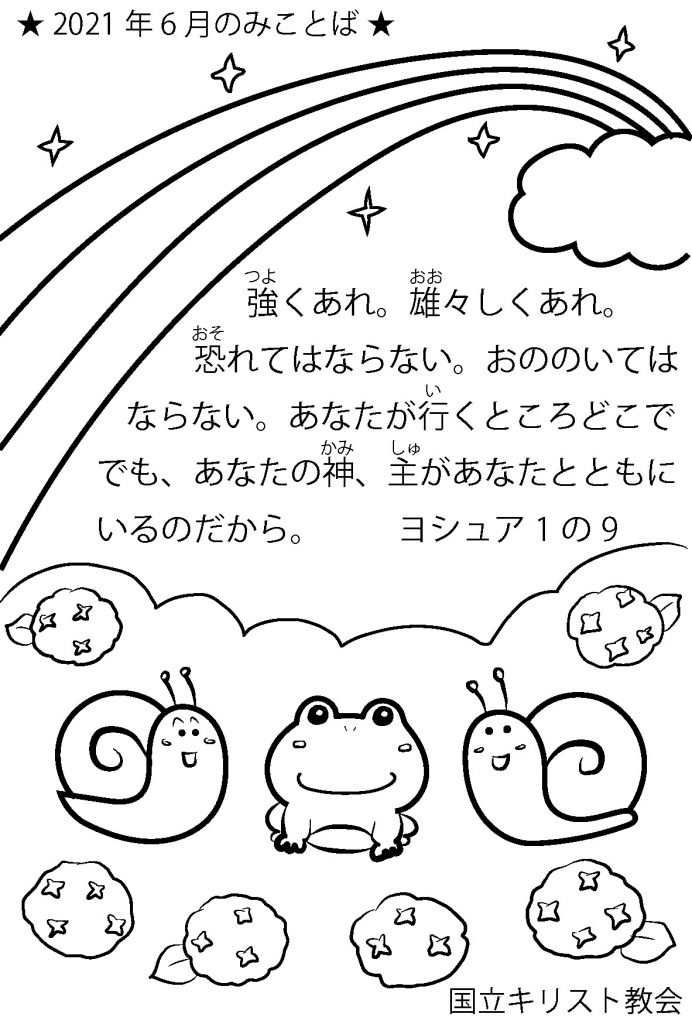 ★ 2021 年 6 月のみことば ★
強くあれ。雄々しくあれ。
恐れてはならない。おののいては
ならない。あなたが行くところどこで
でも、あなたの神、主があなたとともに
いるのだから。 ヨシュア 1 の 9
国立キリスト教会